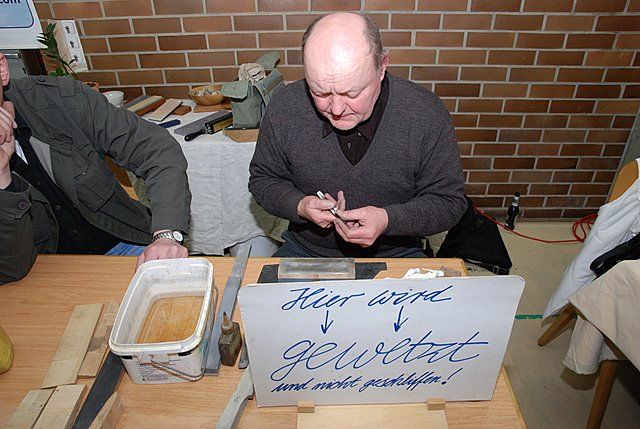 .com
Hier wird
gewetzt
und nicht geschliffen!